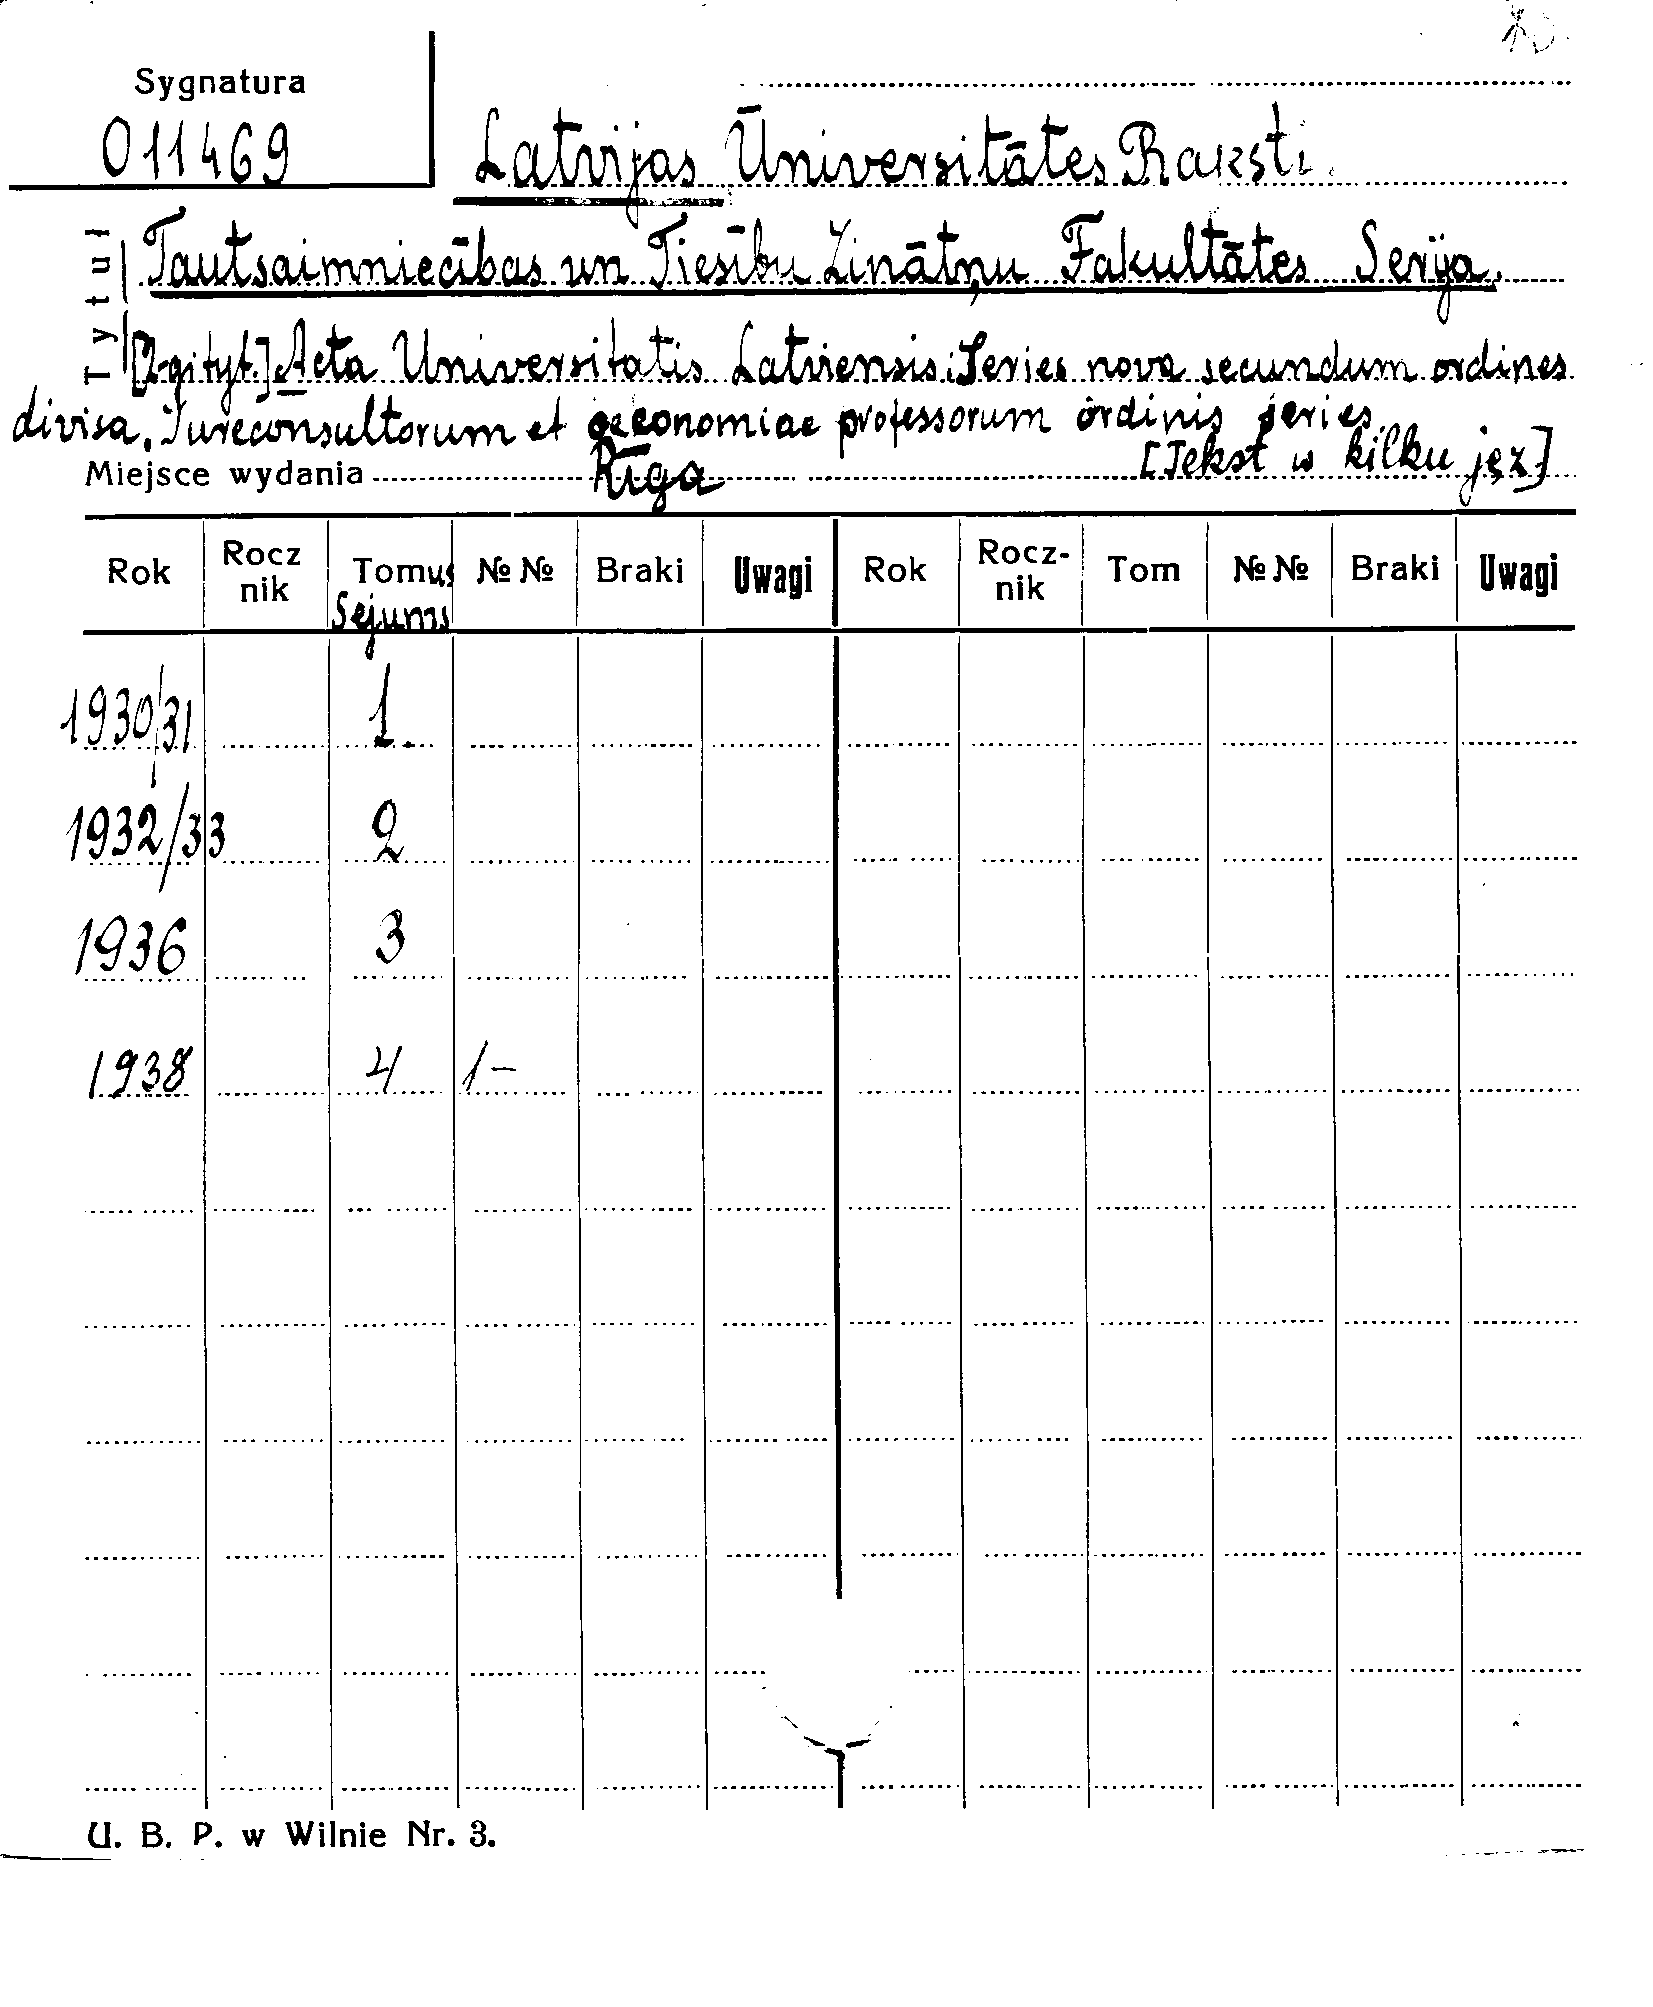 Sygnatura
011469
Latvijas Ūniversitātes Raksti.
Tytuł
Tautsaimniecības un Tiesību Zinātņu Fakultātes Serija.
[2-gi tyt.] Acta Universitatis Latviensis. Series nova secundum ordines
divisa. Iureconsultorum et oeconomiae professorum ordinis series.
Miejsce wydania Rīga [Tekst w kilku jęz.]
Rok Rocz nik Tomus Sējums №№ Braki Uwagi Rok Rocz- nik Tom №№ Braki Uwagi
1930/31 1.
1932/33 2
1936 3
1938 4 1-
U. B. P. w Wilnie Nr. 3.